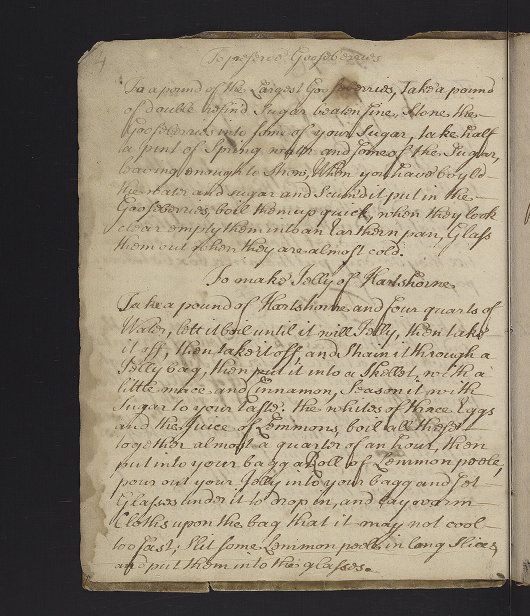 4
To preserve Gooseberries
To a pound of the Largest Gooseberries, take a pound
of double refind Sugar beaten fine, Stone the
Gooseberries into some of your Sugar, take half
a pint of Spring water and some of the Sugar,
leaving enough to Strow, When you have boyld
the water and sugar and Scumd it put in the
Gooseberries, boil them up quick, when they look
clear empty them into an Earthern pan, Glass
them out when they are almost cold.
To make Jelly of Hartshorne
Take a pound of Hartshorne and four quarts of
Water, lett it boil until it will Jelly, then take
it off, then take it off and Strain it through a
Jelly bag, then put it into a Skellet, with a
little mace and Cinnamon, Season it with
Sugar to your taste. the whites of three Eggs
and the juice of Lemmons, boil all these
together almost a quarter of an hour, then
put into your bagg a Roll of Lemmon peele,
pour out your Jelly into your bagg and set
Glasses under it to drop in, and lay warm
Cloths upon the bag that it may not cool
too fast; Slit some Lemmon peele in long Slices
and put them into the glasses.